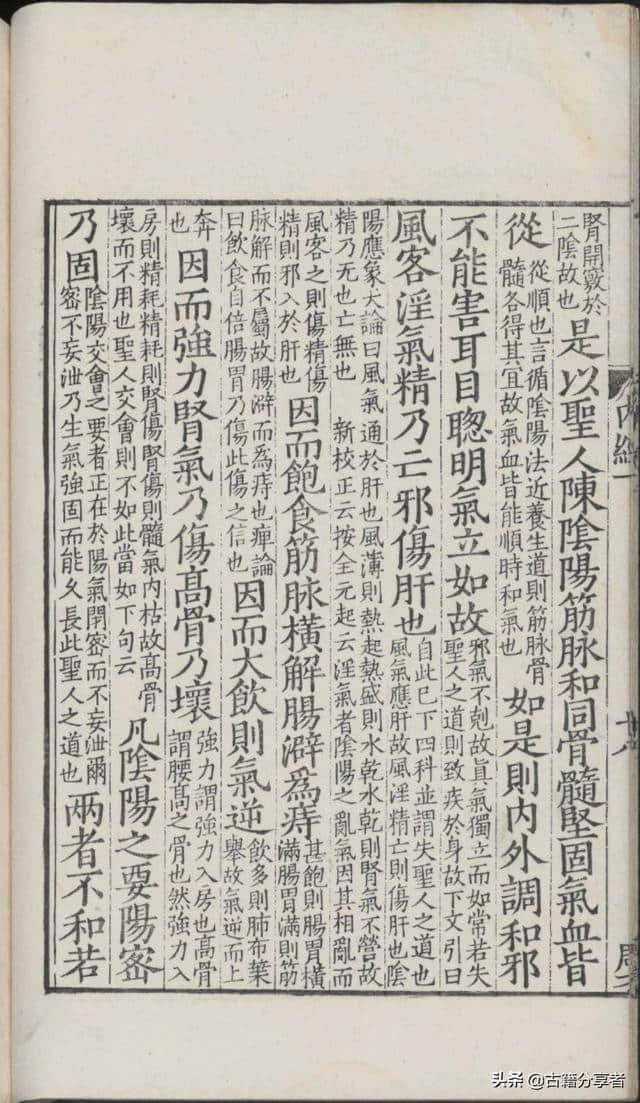 內經一
腎開竅於二陰故也是以聖人陳陰陽筋脉和同骨髓堅固氣血皆
從從順也言循陰陽法近養生道則筋脉骨髓各得其宜故氣血皆能順時和氣也如是則內外調和邪
不能害耳目聦明氣立如故邪氣不剋故眞氣獨立而如常若失聖人之道則致疾於身故下文引曰
風客淫氣精乃亡邪傷肝也自此已下四科並謂失聖人之道也風氣應肝故風淫精亡則傷肝也陰
陽應象大論曰風氣通於肝也風薄則熱起熱盛則水乾水乾則腎氣不營故精乃无也亡無也　新校正云按全元起云淫氣者陰陽之亂氣因其相亂而
風客之則傷精傷精則邪入於肝也因而飽食筋脉橫解腸澼爲痔甚飽則腸胃橫滿腸胃滿則筋
脉解而不屬故腸澼而爲痔也痺論曰飲食自倍腸胃乃傷此傷之信也因而大飲則氣逆飲多則肺布葉舉故氣逆而上
奔也因而強力腎氣乃傷髙骨乃壞強力謂強力入房也髙骨謂腰髙之骨也然強力入
房則精耗精耗則腎傷腎傷則髓氣内枯故髙骨壞而不用也聖人交會則不如此當如下句云凡陰陽之要陽密
乃固陰陽交會之要者正在於陽氣閉密而不妄泄爾密不妄泄乃生氣強固而能久長此聖人之道也兩者不和若
头条 @古籍分享者